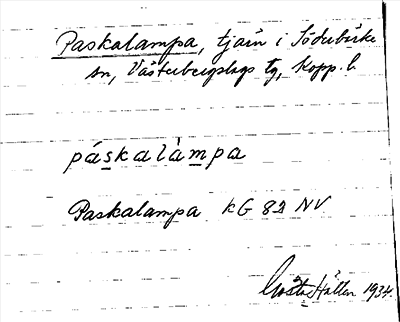 Paskalampa, tjärn i Söderbärke
sn, Västerbergslags tg, Kopp. l.
páskalàmpa
Paskalampa KG 83 NV
Gösta Hallen 1934.